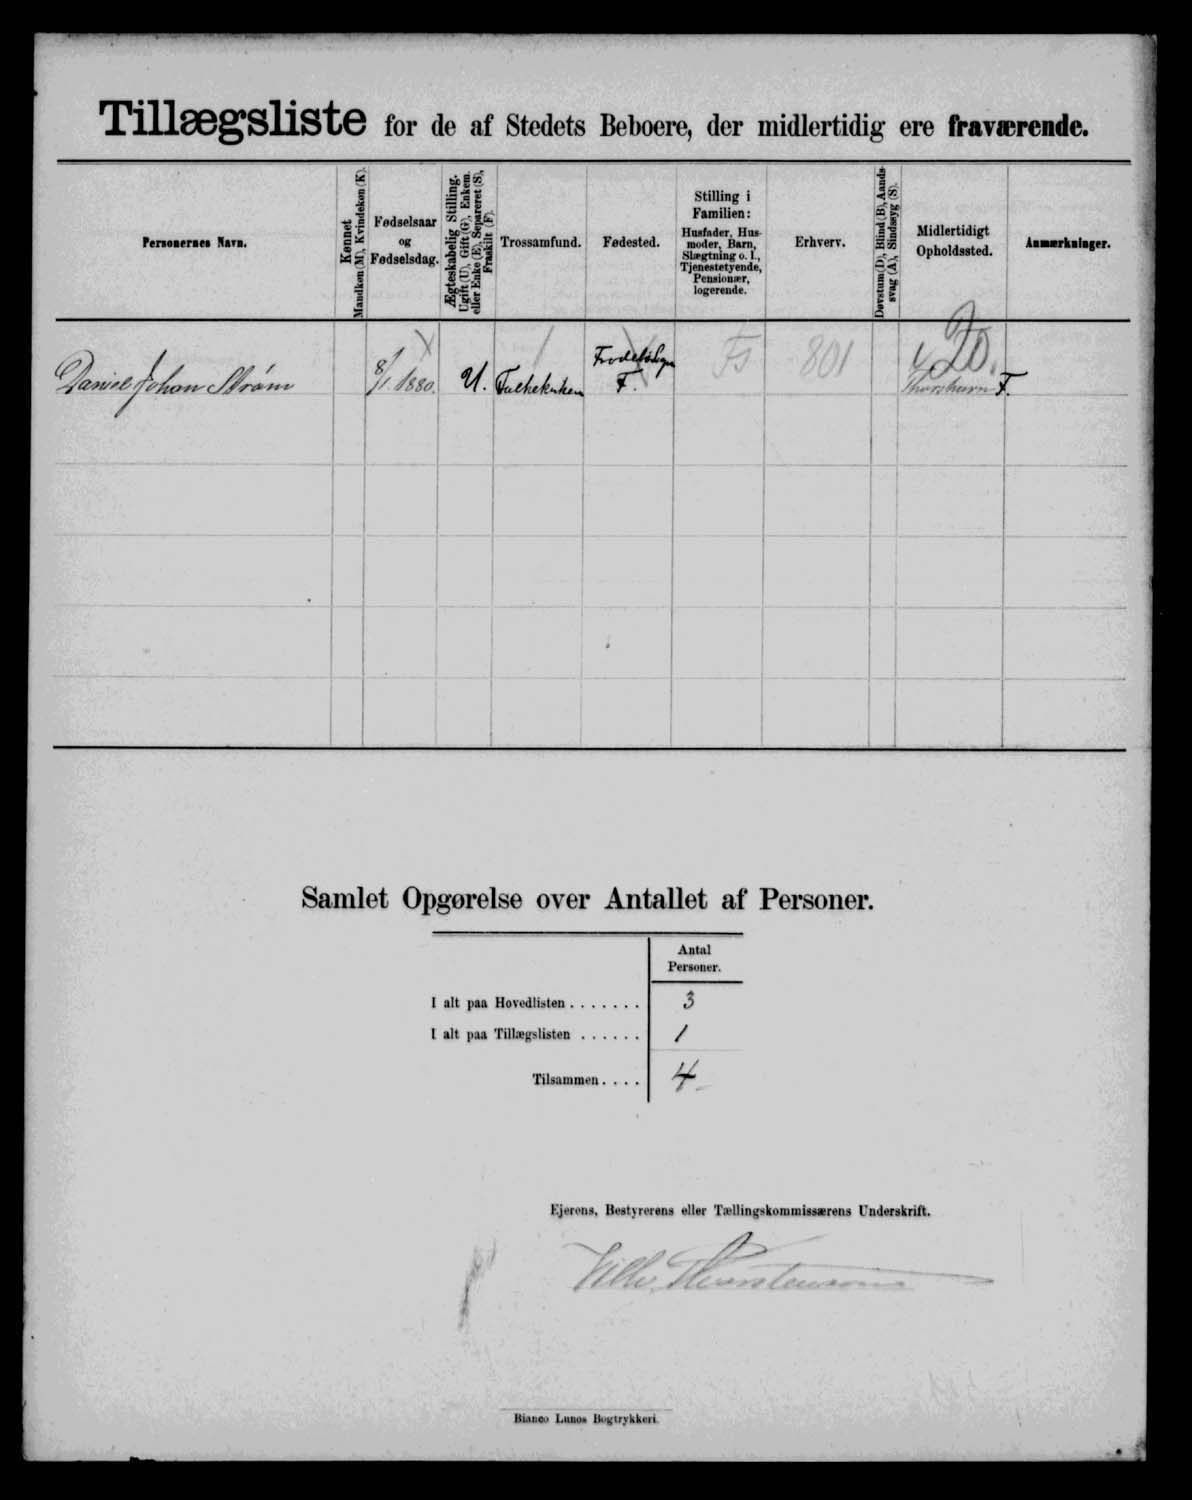 Tillægsliste for de af Stedets Beboere, der midlertidig ere fraværende.
Personernes Navn.
Kønnet
Mandkøn (M), Kvindekøn (K).
Fødselsaar
og
Fødselsdag.
Ægteskabelig Stilling.
Ugift (U), Gift (G), Enkem.
eller Enke (E), Separeret (S),
Fraskilt (F).
Trossamfund.
Fødested.
Stilling i
Familien:
Husfader, Hus-
moder, Barn,
Slægtning o. l.,
Tjenestetyende,
Pensionær,
logerende.
Erhverv.
Døvstum (D), Blind (B), Aands-
svag (A), Sindssyg (S).
Midlertidigt
Opholdssted.
Anmærkninger.
Daniel Johan Strøm
8/1 1880.
U.
Folkekirken
F.
Fs
801
20.
Thorshavn F.
Samlet Opgørelse over Antallet af Personer.
Antal
Personer.
I alt paa Hovedlisten . . . . . . . 3
I alt paa Tillægslisten . . . . . . 1
Tilsammen . . . . 4
Ejerens, Bestyrerens eller Tællingskommissærens Underskrift.
Bianco Lunos Bogtrykkeri.